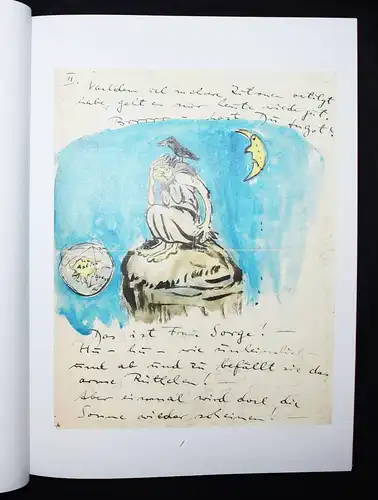 II. Nachdem ich mehrere Zitronen vertilgt
habe, geht es mir heute wieder gut.
Brrrrr – hast Du Angst?
Das ist Frau Sorge! –
Hu – hu – wie unheimlich –
und ab und zu befällt sie das
arme Rütschen! –
Aber einmal wird doch die
Sonne wieder scheinen! –